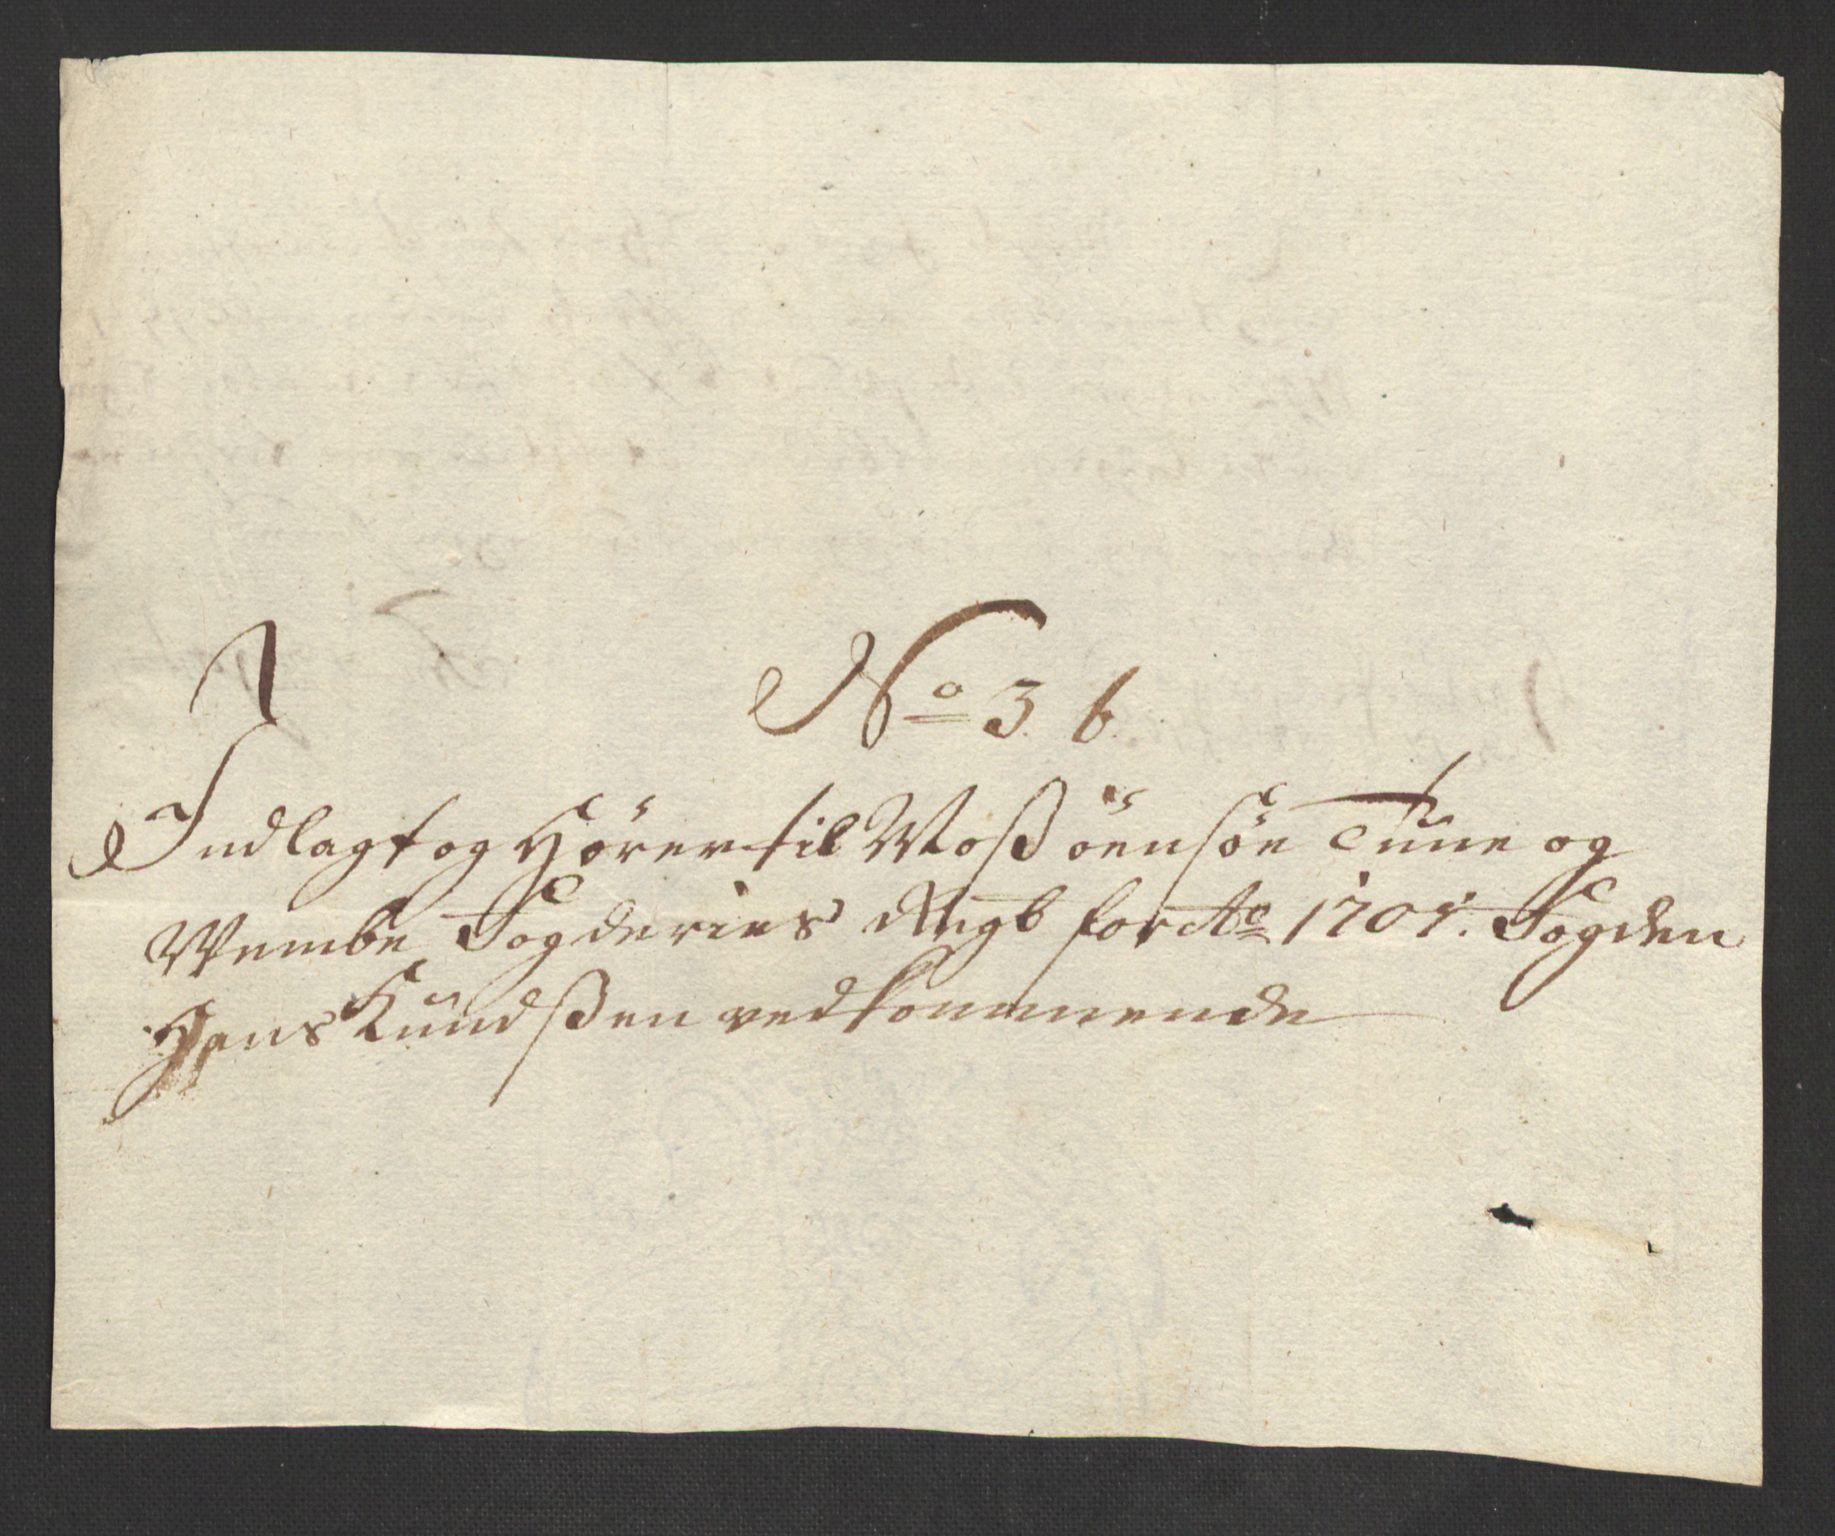 No 3. b.
Indlagt og Hörer til Moß önsöe Tune og
Wembe Fogderies Regb for Ao 1701. Fogden
Hans Knudßen vedkommende